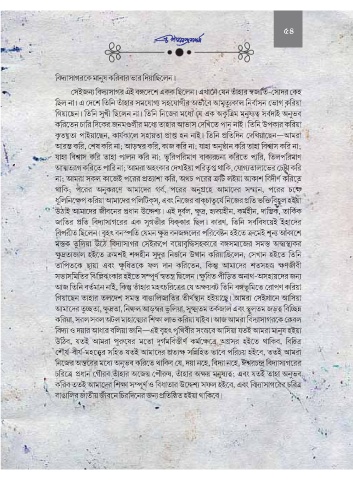 ৫৪
বিদ্যাসাগরকে মানুষ করিবার ভার দিয়াছিলেন।
সেইজন্য বিদ্যাসাগর এই বঙ্গদেশে একক ছিলেন। এখানে যেন তাঁহার স্বজাতি-সোদর কেহ
ছিল না। এ দেশে তিনি তাঁহার সমযোগ্য সহযোগীর অভাবে আমৃত্যুকাল নির্বাসন ভোগ করিয়া
গিয়াছেন। তিনি সুখী ছিলেন না। তিনি নিজের মধ্যে যে এক অকৃত্রিম মনুষ্যত্ব সর্বদাই অনুভব
করিতেন চারি দিকের জনমণ্ডলীর মধ্যে তাহার আভাস দেখিতে পান নাই। তিনি উপকার করিয়া
কৃতঘ্নতা পাইয়াছেন, কার্যকালে সহায়তা প্রাপ্ত হন নাই। তিনি প্রতিদিন দেখিয়াছেন—আমরা
আরম্ভ করি, শেষ করি না; আড়ম্বর করি, কাজ করি না; যাহা অনুষ্ঠান করি তাহা বিশ্বাস করি না;
যাহা বিশ্বাস করি তাহা পালন করি না; ভূরিপরিমাণ বাক্যরচনা করিতে পারি, তিলপরিমাণ
আত্মত্যাগ করিতে পারি না; আমরা অহংকার দেখাইয়া পরিতৃপ্ত থাকি, যোগ্যতালাভের চেষ্টা করি
না; আমরা সকল কাজেই পরের প্রত্যাশা করি, অথচ পরের ত্রুটি লইয়া আকাশ বিদীর্ণ করিতে
থাকি; পরের অনুকরণে আমাদের গর্ব, পরের অনুগ্রহে আমাদের সম্মান, পরের চক্ষে
ধূলিনিক্ষেপ করিয়া আমাদের পলিটিক্‌স, এবং নিজের বাক্‌চাতুর্যে নিজের প্রতি ভক্তিবিহ্বল হইয়া
উঠাই আমাদের জীবনের প্রধান উদ্দেশ্য। এই দুর্বল, ক্ষুদ্র, হৃদয়হীন, কর্মহীন, দাম্ভিক, তার্কিক
জাতির প্রতি বিদ্যাসাগরের এক সুগভীর ধিক্কার ছিল। কারণ, তিনি সর্ববিষয়েই ইহাদের
বিপরীত ছিলেন। বৃহৎ বনস্পতি যেমন ক্ষুদ্র বনজঙ্গলের পরিবেষ্টন হইতে ক্রমেই শূন্য আকাশে
মস্তক তুলিয়া উঠে বিদ্যাসাগর সেইরূপে বয়োবৃদ্ধিসহকারে বঙ্গসমাজের সমস্ত অস্বাস্থ্যকর
ক্ষুদ্রতাজাল হইতে ক্রমশই শব্দহীন সুদূর নির্জনে উত্থান করিয়াছিলেন, সেখান হইতে তিনি
তাপিতকে ছায়া এবং ক্ষুধিতকে ফল দান করিতেন, কিন্তু আমাদের শতসহস্র ক্ষণজীবী
সভাসমিতির ঝিল্লিঝংকার হইতে সম্পূর্ণ স্বতন্ত্র ছিলেন। ক্ষুধিত পীড়িত অনাথ-অসহায়দের জন্য
আজ তিনি বর্তমান নাই, কিন্তু তাঁহার মহৎচরিত্রের যে অক্ষয়বট তিনি বঙ্গভূমিতে রোপণ করিয়া
গিয়াছেন তাহার তলদেশ সমস্ত বাঙালিজাতির তীর্থস্থান হইয়াছে। আমরা সেইখানে আসিয়া
আমাদের তুচ্ছতা, ক্ষুদ্রতা, নিষ্ফল আড়ম্বর ভুলিয়া, সূক্ষ্মতম তর্কজাল এবং স্থূলতম জড়ত্ব বিচ্ছিন্ন
করিয়া, সরল সবল অটল মাহাত্ম্যের শিক্ষা লাভ করিয়া যাইব। আজ আমরা বিদ্যাসাগরকে কেবল
বিদ্যা ও দয়ার আধার বলিয়া জানি—এই বৃহৎ পৃথিবীর সংস্রবে আসিয়া যতই আমরা মানুষ হইয়া
উঠিব, যতই আমরা পুরুষের মতো দুর্গমবিস্তীর্ণ কর্মক্ষেত্রে অগ্রসর হইতে থাকিব, বিচিত্র
শৌর্য-বীর্য-মহত্ত্বের সহিত যতই আমাদের প্রত্যক্ষ সন্নিহিত ভাবে পরিচয় হইবে, ততই আমরা
নিজের অন্তরের মধ্যে অনুভব করিতে থাকিব যে, দয়া নহে, বিদ্যা নহে, ঈশ্বরচন্দ্র বিদ্যাসাগরের
চরিত্রে প্রধান গৌরব তাঁহার অজেয় পৌরুষ, তাঁহার অক্ষয় মনুষ্যত্ব; এবং যতই তাহা অনুভব
করিব ততই আমাদের শিক্ষা সম্পূর্ণ ও বিধাতার উদ্দেশ্য সফল হইবে, এবং বিদ্যাসাগরের চরিত্র
বাঙালির জাতীয় জীবনে চিরদিনের জন্য প্রতিষ্ঠিত হইয়া থাকিবে।